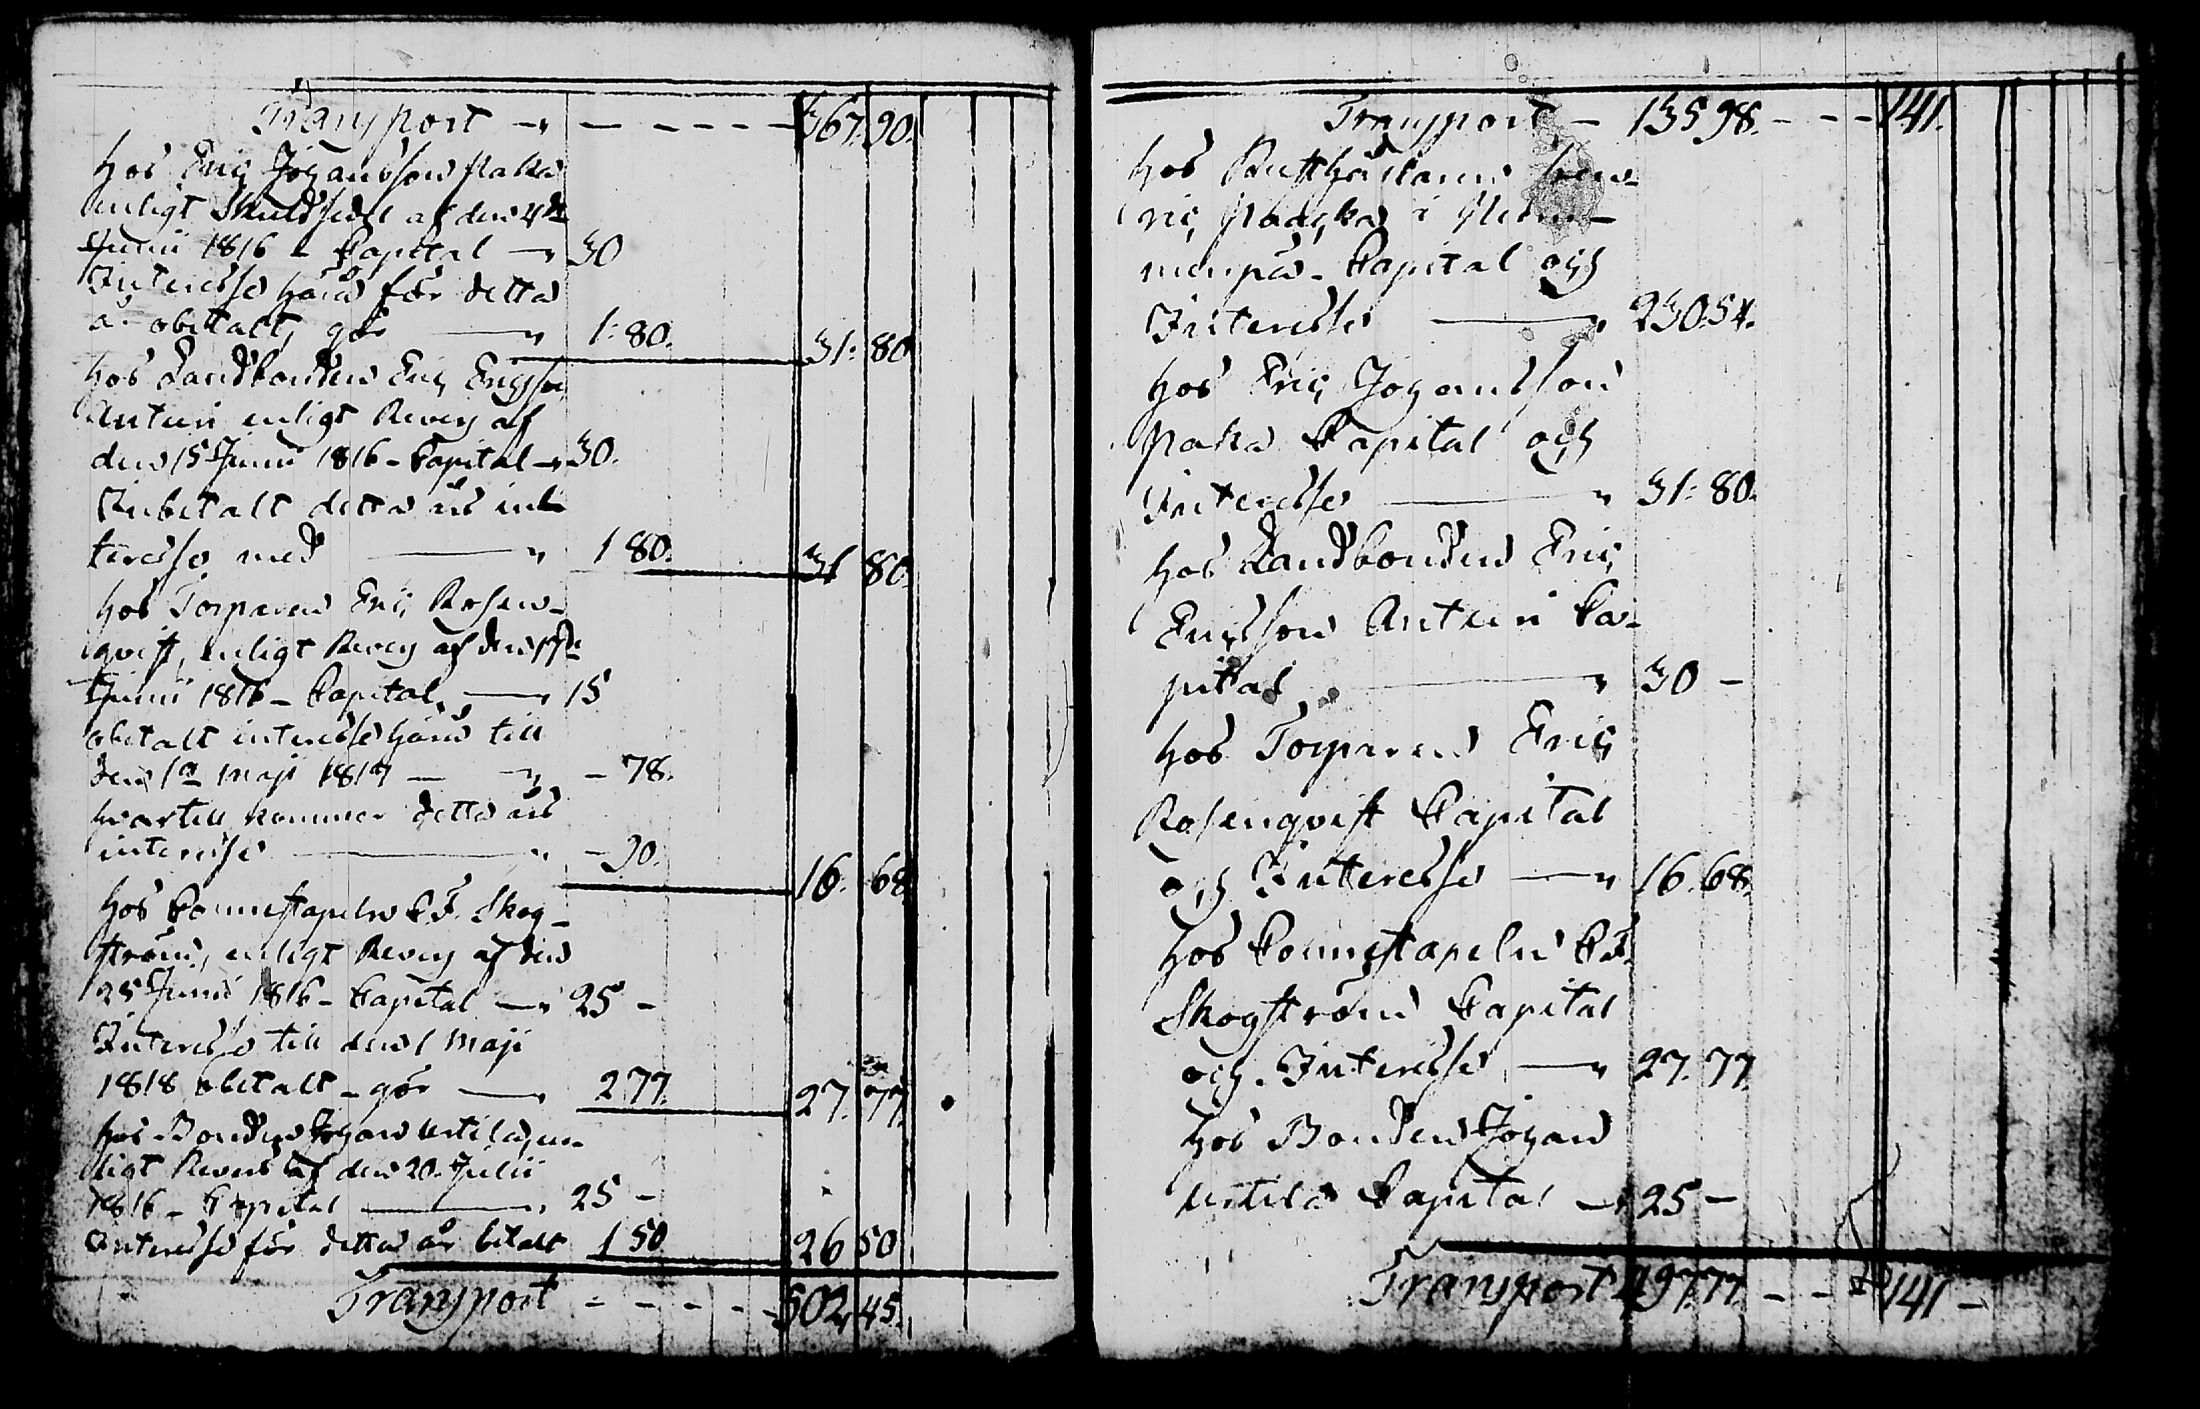 Transport - - - - - 367. 90.
hos Eric Johansson Paka
enligt Skuldsedel af den 4de
Junii 1816 - Capital - 30
Interesse härå för detta
år obetalt, gör - 1: 80. 31: 80
hos Landbonden Eric Ericsson
Anturi enligt Revers af
den 15 Junii 1816 - Capital - 30.
Inbetalt detta års in-
teresse med - 1 80. 31 80.
hos Torparen Eric Rosen-
qvist, enligt Revers af den
Junii 1816 - Capital - 15
obetalt interesse härå till
den 1a Maji 1817 - - 78.
hvartill kommer detta års
interesse - - 90. 16. 68
hos Connestapeln C F. Skog-
ström, enligt Revers af den
25 Junii 1816 - Capital - 25 -
Interesse till den 1 Maji
1818 obetalt - gör - 2 77. 27. 77.
hos Bonden Johan Urtila, en-
ligt Revers af den 20. Julii
1816 - Capital - 25 -
Interesse för detta år betalt 1 50 26 50
Transport - - - - - 502 45.
Transport - 135 98. - - - 141.
hos Rusthållaren Hen-
ric i
Capital och
Interesse - 230. 54.
hos Eric Johansson
Paka Capital och
Interesse - 31: 80.
hos Landbonden Eric
Ericsson Anturi Ca-
pital - 30 -
hos Torparen Eric
Rosenqvist Capital
och Interesse - 16. 68.
hos Connestapeln C F.
Skogström Capital
och Interesse - 27. 77.
hos Bonden Johan
Urtila Capital - 25 -
Transport 497. 77 - - 141 -